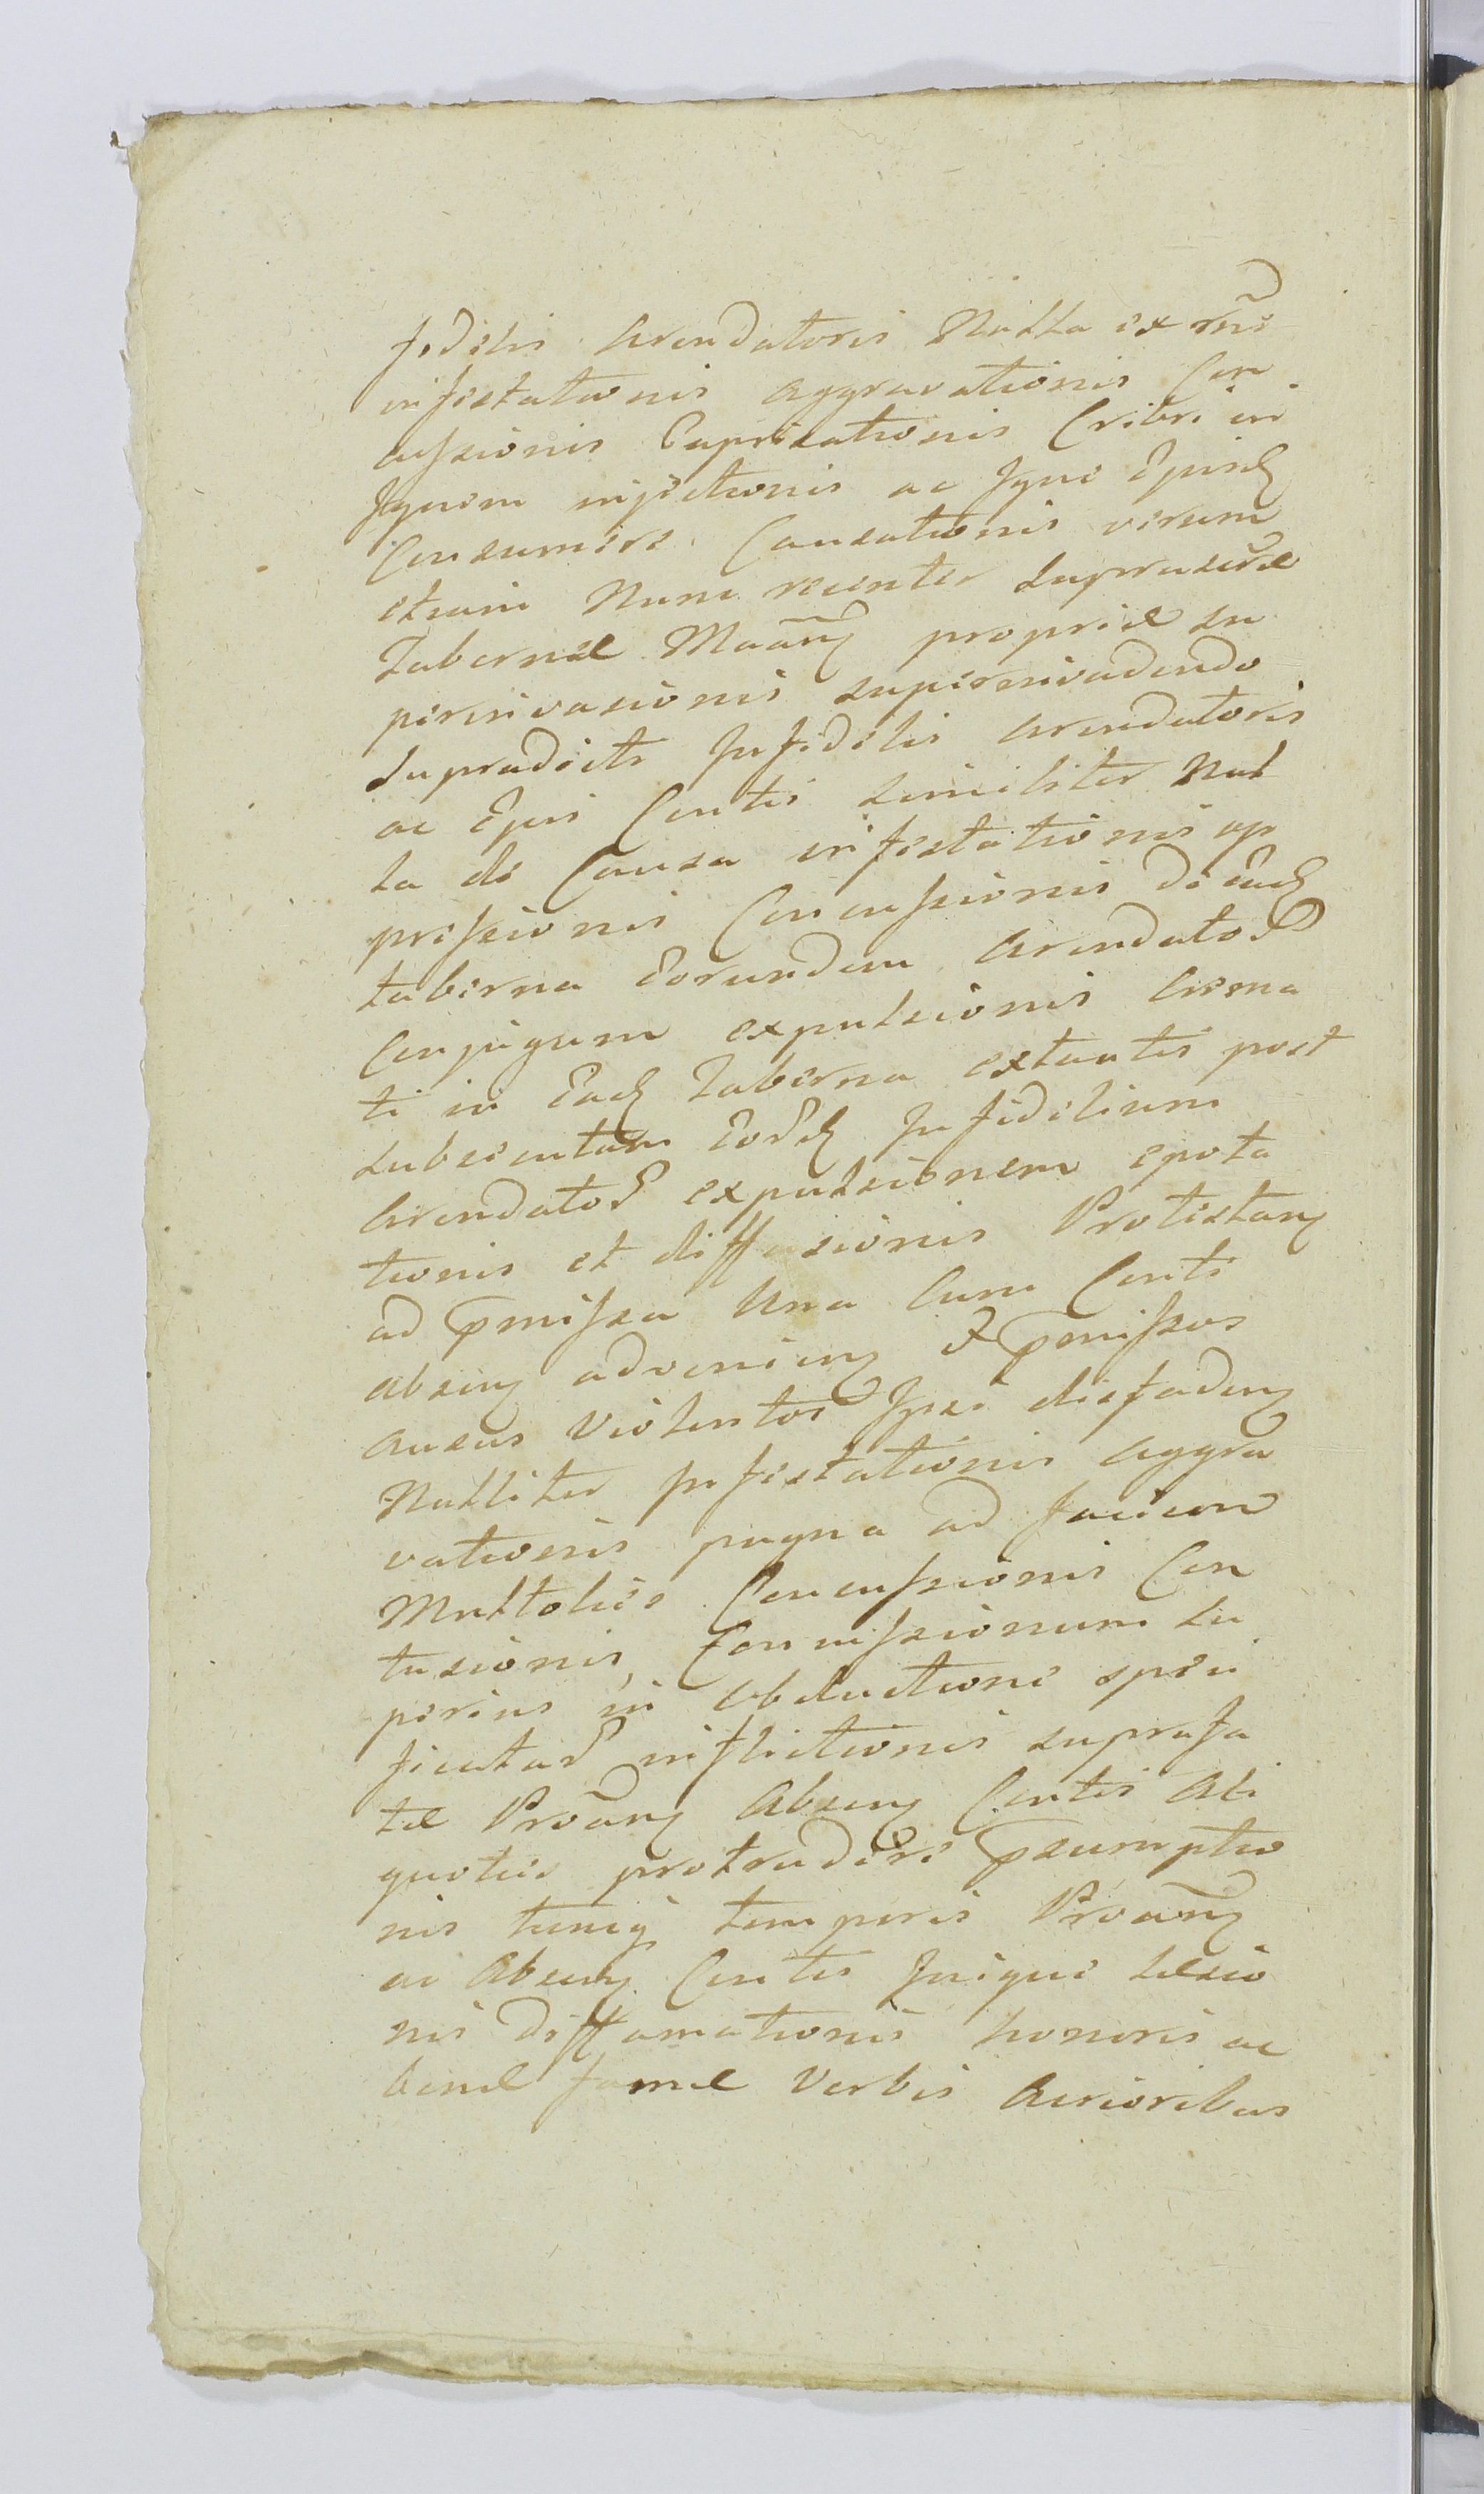 fidelis Arendatoris Nulla ex rñe
infestationis aggravationis Con
cussionis Caprisationis Cribri in
Ignem injectionis ac Igne Ejusd
Consumere Causationis verum
etiam Nunc recenter supraserae
Tabernae Maãng propriae su
perinvasionis superinvadendo
supradicti Infidelis Arendatoris
ac Ejus Contis similiter Nul
la de Causa infestationis op
pressionis Concussionis de Ead
taberna Eorundem Arendator
Conjugum expulsionis Crema
ti in Ead Taberna extantis post
subsecutam Eord Infidelium
Arendator expulsionem epota
tionis et diffusionis Protestang
ad pmissa Una Cum Conte
absing advening et pmissos
ausus violentos Ipsi dissadeng
Nulliter Infestationis Aggra
vationis pugna ad faciem
Multoties Concussionis Con
tusionis, Concussionum su
perius in Obductione speci
ficatar inflictionis suprafa
tae Proãng Absing Contis Ali
quoties protrudere psumptio
nis tuniq temporis Proãng
ac Absing Contis Inique laesio
nis diffamationis honoris ac
benae famae Verbis Acrioribus